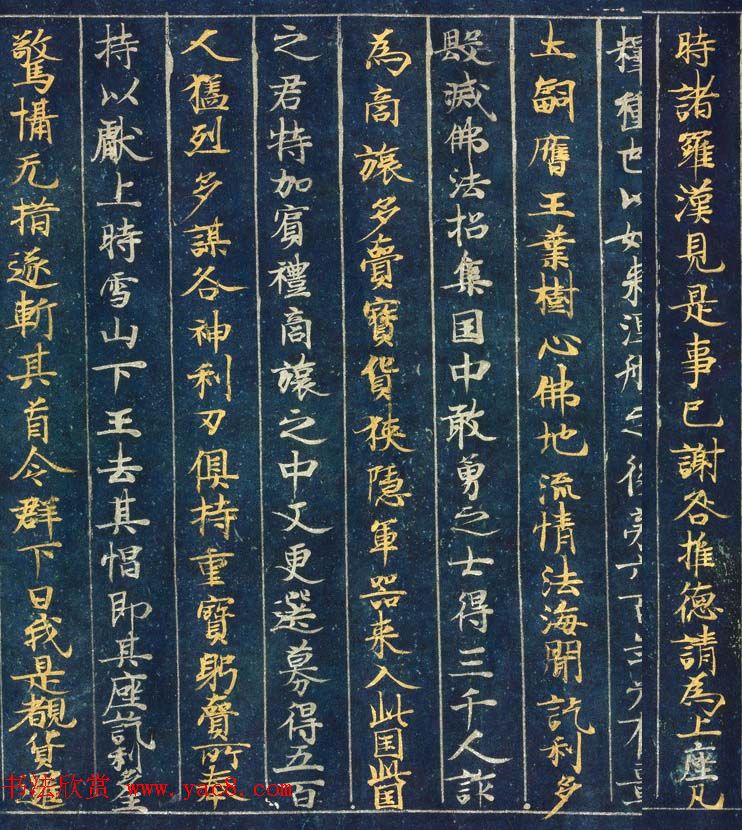 時諸羅漢見是事已謝咎推德請為上座凡
種也以如来涅槃之後六百
土嗣膺王葉樹心佛地流情法海聞訖利多
毀滅佛法招集国中敢勇之士得三千人詐
為商旅多賣寶貨挾隱軍器来入此国此国
之君特加賓禮商旅之中又更選募得五百
人猛烈多謀各神利刃俱持重寶躬齎所奉
持以獻上時雪山下王去其帽即其座訖利多王
驚慴无措遂斬其首令群下曰我是覩貨邏
书法欣赏 www.yac8.com